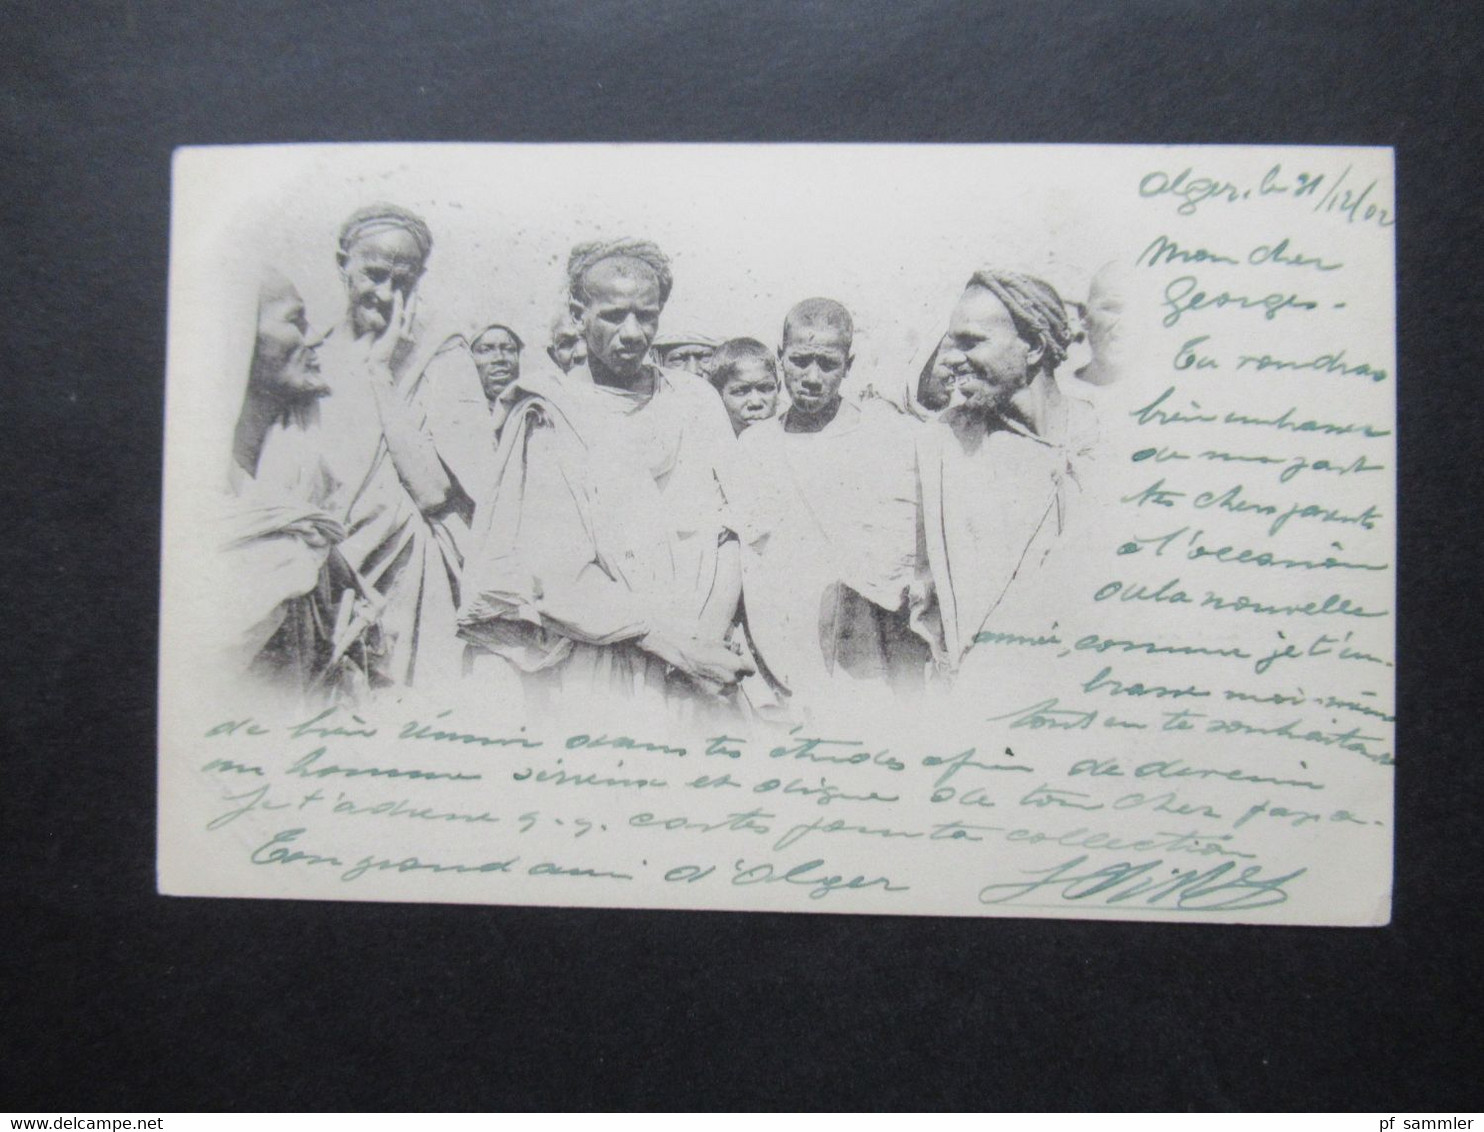 Alger, le 31/12/02
Mon cher
Georges.
Tu voudras
bien embrasser
de ma part
tes chers parents
à l'occasion
de la nouvelle
année, comme je t'em-
brasse moi-même
tout en te souhaitant
de bien réussir dans tes études afin de devenir
un homme sérieux et digne de ton cher papa.
Je t'adresse q.q. cartes pour ta collection
Ton grand ami d'Alger
www.delcampe.net
pf_sammler